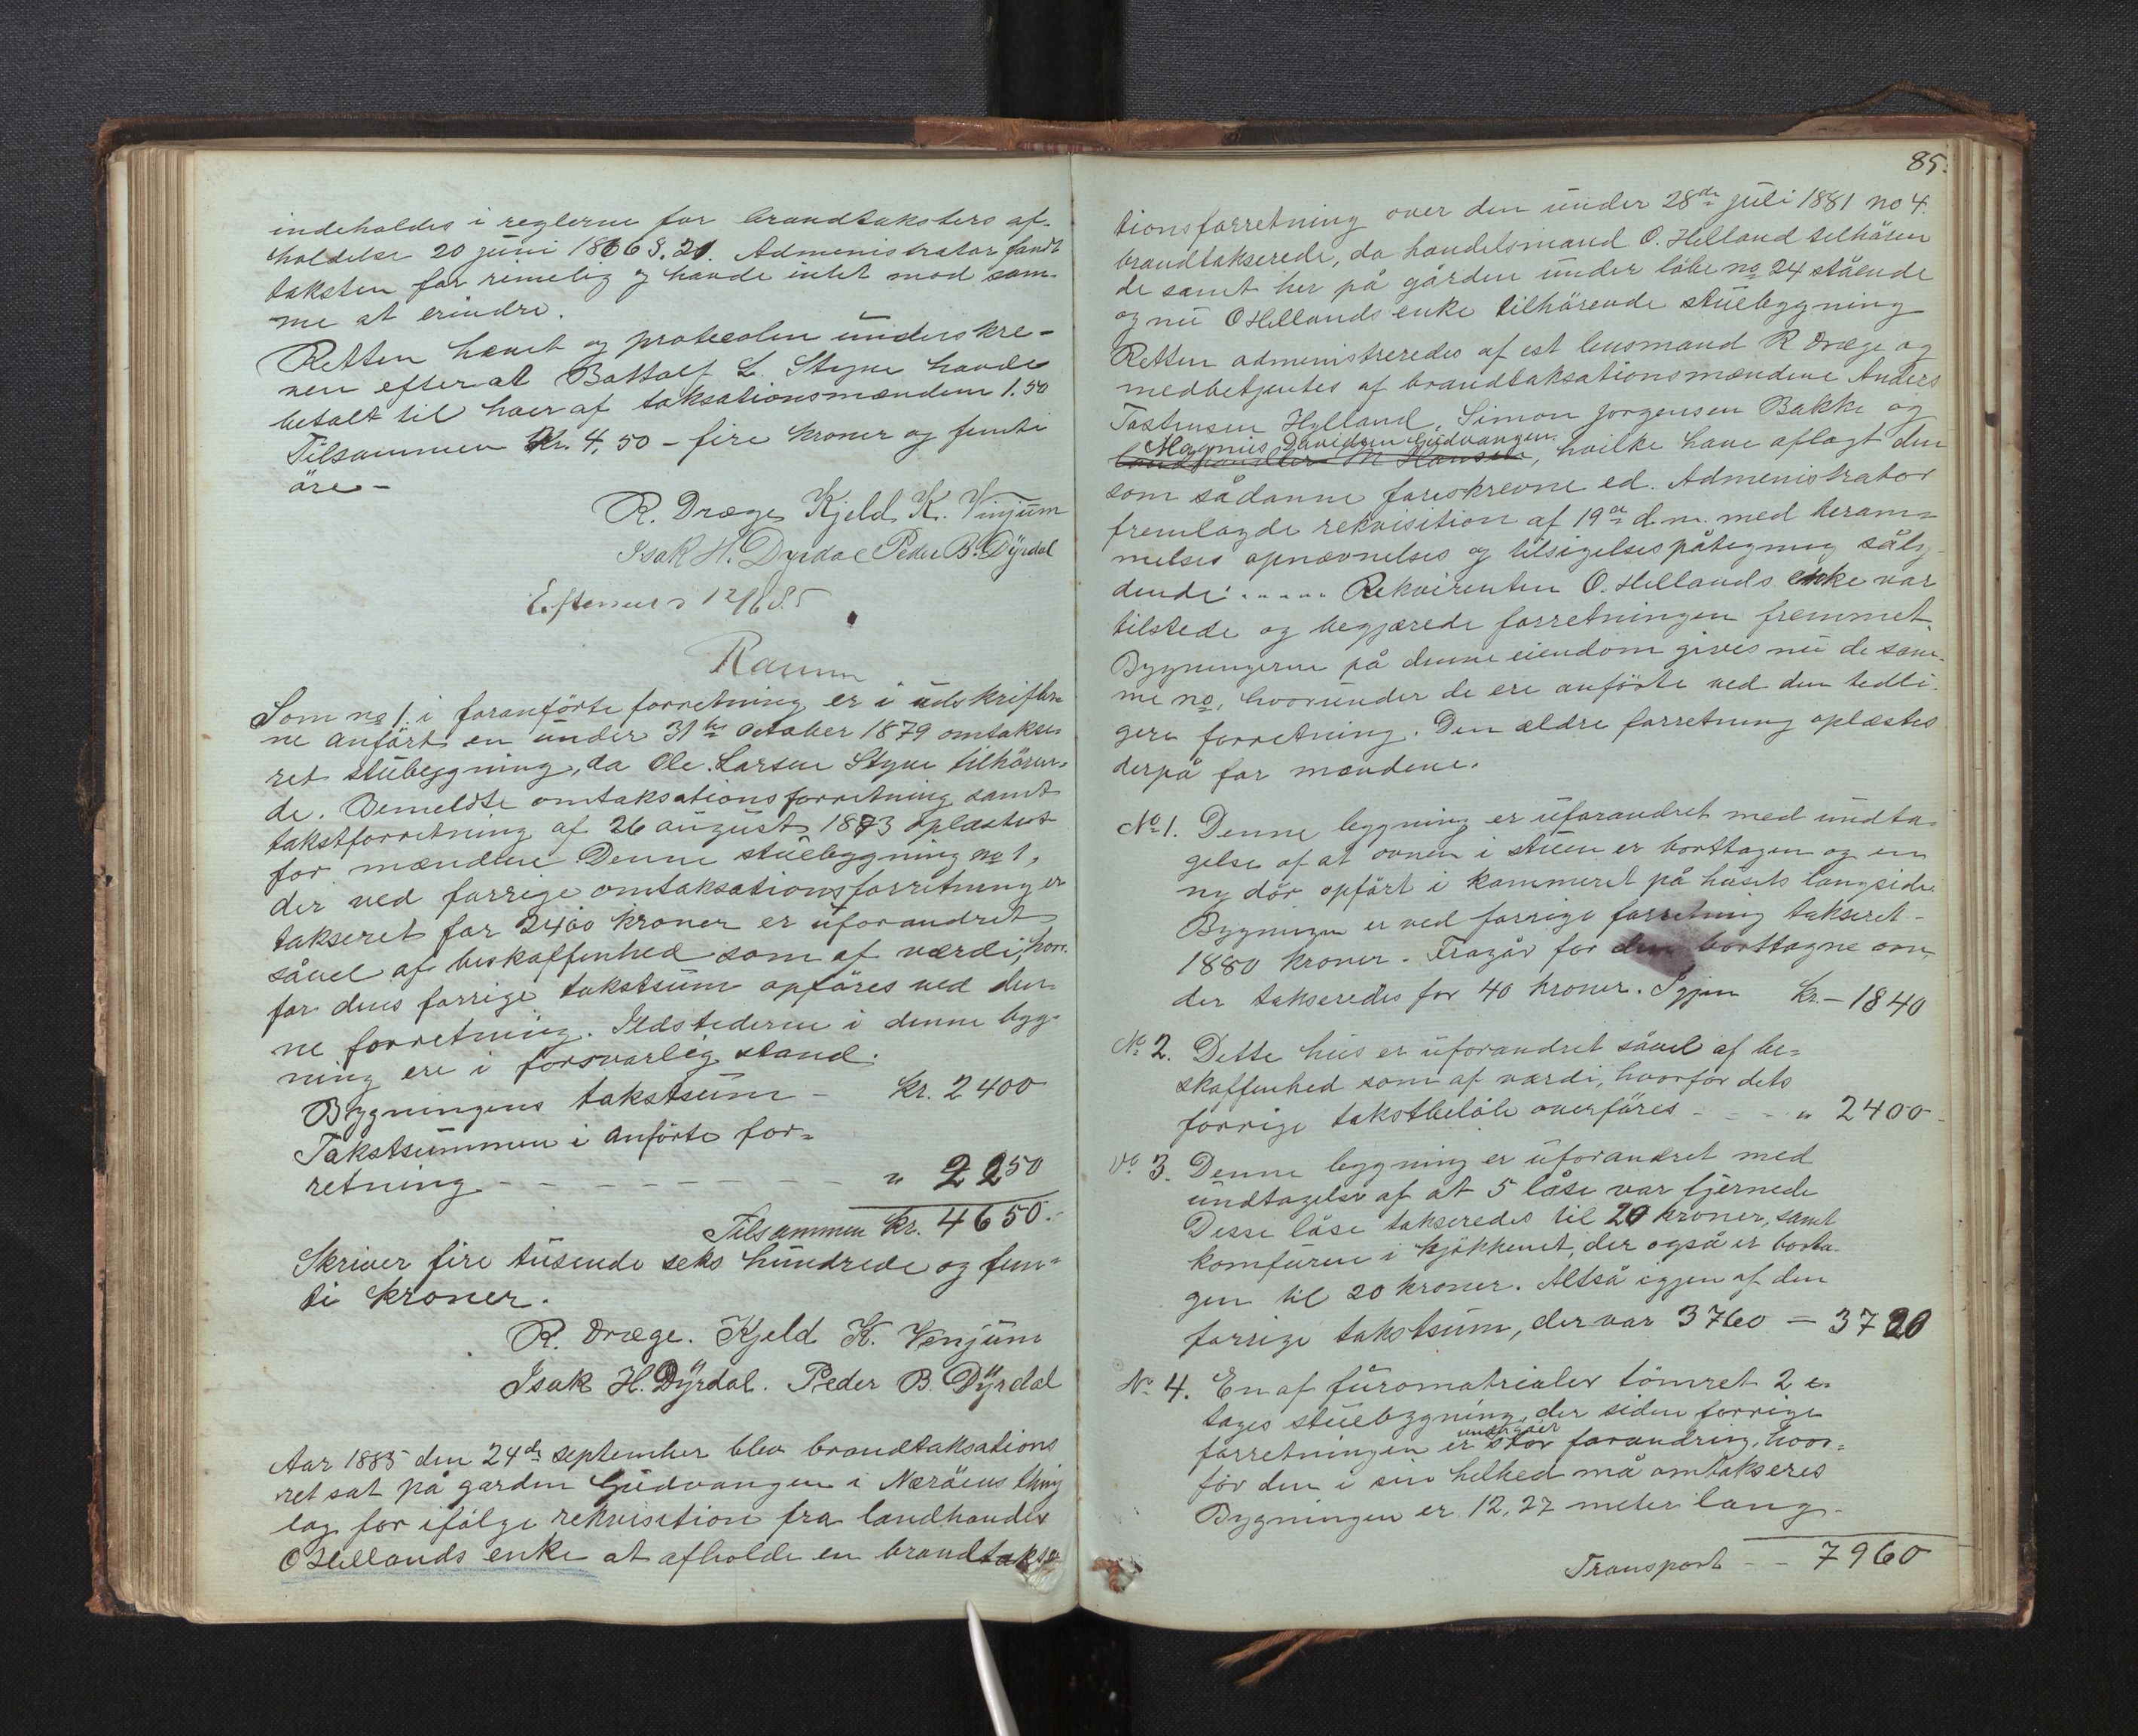 indeholdes i reglerne for brandtaksters af-
holdelse 20 juni 1866 §. 21. Administrator fandt
taksten for rimelig og havde intet mod sam-
me at erindre.
Retten hævet og protocolen underskre-
ven efterat Bottolf L. Styve havde
betalt til hver af taksationsmændene 1.50
Tilsammen Kr. 4,50 – fire kroner og femti
øre –
R. Dræge Kjeld K. Vinjum
Isak H. Dyrdal Peder B. Dÿrdal
12/6 85
Som no 1. i foranførte forretning er i udskrifter-
ne anført en under 31te october 1879 omtakse-
ret stubygning, da Ole Larsen Styve tilhøren-
de. Bemeldte omtaksationsforretning samt
takstforretning af 26 august 1873 oplæstes
for mændene. Denne stuebygning no 1,
der ved forrige omtaksationsforretning er
takseret for 2400 kroner er uforandret
såvel af beskaffenhed som af værdi, hvor-
for dens forrige takstsum opføres ved den-
ne forretning. Ildstederne i denne byg-
ning ere i forsvarlig stand.
Bygningens takstsum – kr. 2400
Takstsummen i anførte for-
retning – – – – – – – – „ 2250
Tilsammen kr. 4650.-
Skriver fire tusende seks hundrede og fem-
ti kroner.
R. Dræge. Kjeld K. Venjum
Isak H. Dÿrdal. Peder B. Dÿrdal
Aar 1885 den 24de september blev brandtaksations
ret sat på garden Gudvangen i Nærøens thing
lag for ifølge rekvisition fra landhandler
O Hellands enke at afholde en brandtaksa
85.
tionsforretning over den under 28de juli 1881 no 4.
brandtakserede, da handelsmand O. Helland tilhøren
de samt her på gården under løbe no 24 stående
og nu O Hellands enke tilhørende stuebygning
Retten administreredes af cst lensmand R Dræge og
medbetjentes af brandtaksationsmændene Anders
Tostensen Hylland, Simon Jorgensen Bakke og
Magnus Davidsen Gudvangen
landhandler M Hansen, hvilke have aflagt den
som sådanne foreskrevne ed. Administrator
fremlagde rekvisition af 19de d. m. med beram-
melses opnævnelses og tilsigelsespåtegning såly-
dende: . . . . . Rekvirenten O. Hellands enke var
tilstede og begjærede forretningen fremmet.
Bygningerne på denne eiendom gives nu de sam-
me no, hvorunder de ere anførte ved den tidli-
gere forretning. Den ældre forretning oplæstes
derpå for mændene.
No 1. Denne bygning er uforandret med undta-
gelse af at ovnen i stuen er borttagen og en
ny dør opført i kammeret på husets langside.
Bygningen er ved forrige forretning takseret –
1880 kroner. Fragår for den borttagne ovn,
der takseredes for 40 kroner. Igjen kr. – 1840
No 2. Dette hus er uforandret såvel af be-
skaffenhed som af værdi, hvorfor dets
forrige takstbeløb overføres – – – „ 2400 –
No 3. Denne bygning er uforandret med
undtagelse af at 5 låse var fjernede
Disse låse takseredes til 20 kroner, samt
komfuren i kjøkkenet, der også er borta-
gen til 20 kroner. Altså igjen af den
forrige takstsum, der var 3760 = 3720
No 4. En af furomatrialer tømret 2 e-
tages stuebygning, der siden forrige
undergået
forretningen er stor forandring, hvor-
for den i sin helhed må omtakseres
Bygningen er 12,27 meter lang –
Transport – – 7960